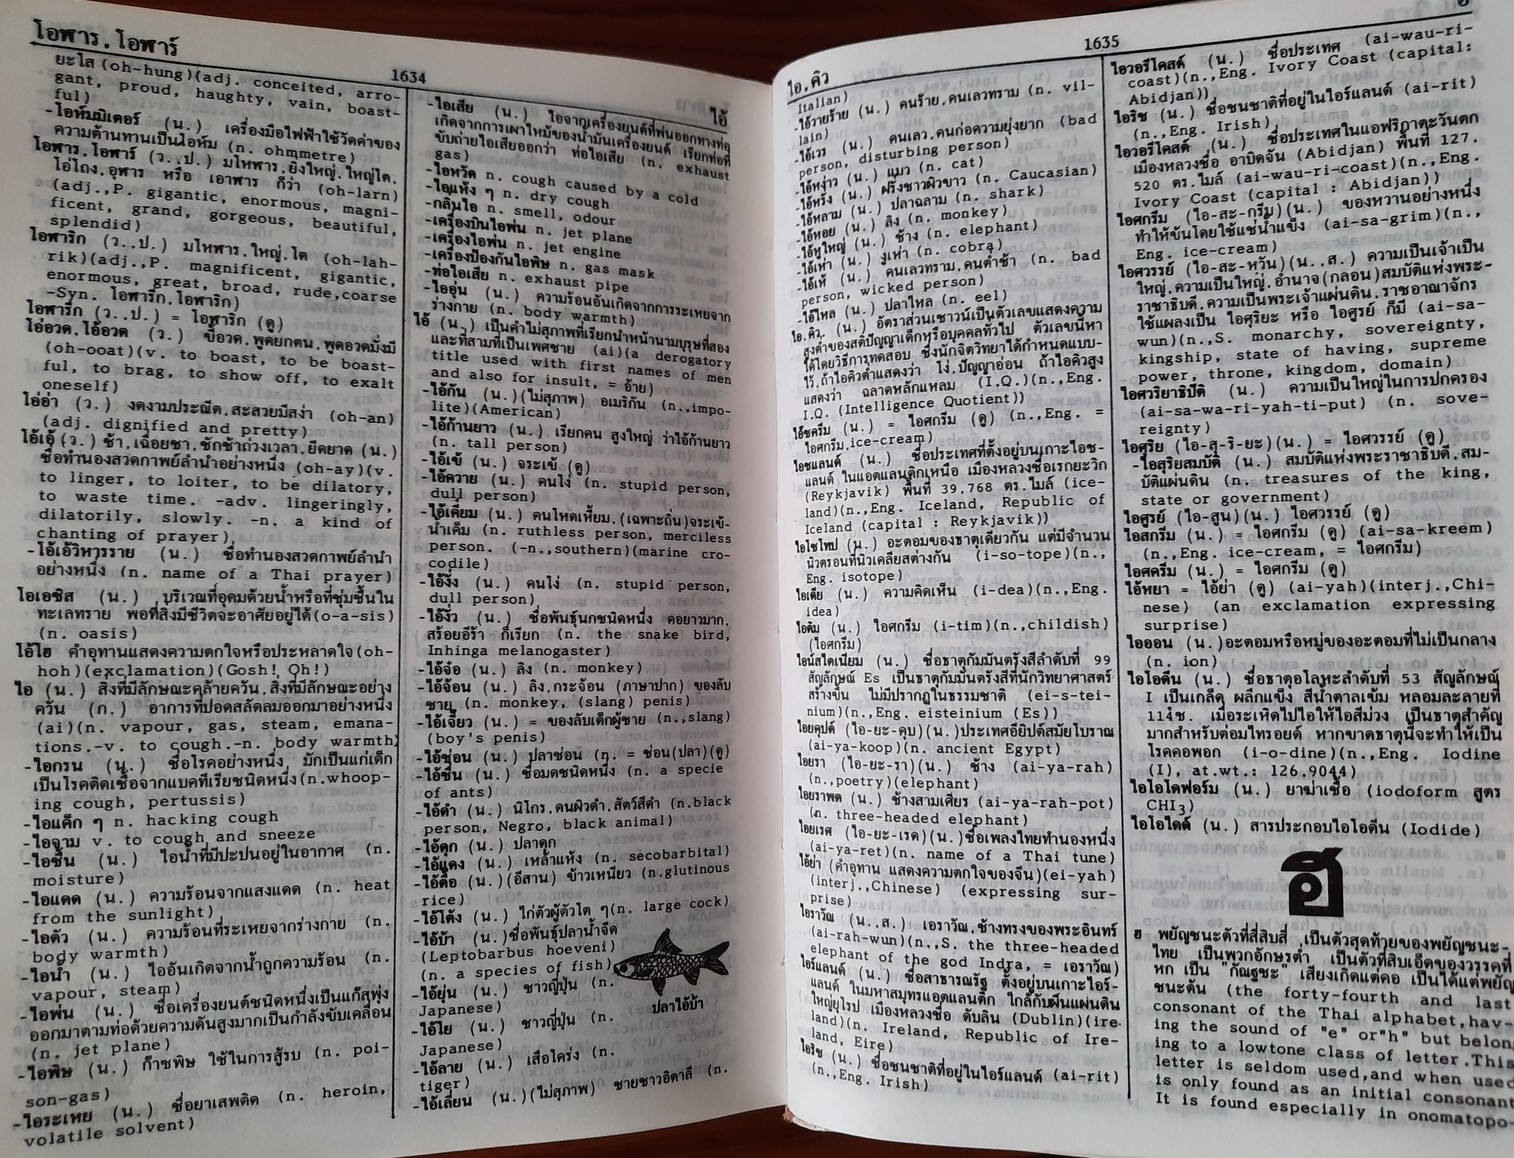 โอฬาร.โอฬาร์
1634
ไอ้
ยะโส (oh-hung)(adj. conceited, arro-
gant, proud, haughty, vain, boast-
ful)
-โอห์มมิเตอร์ (น.) เครื่องมือไฟฟ้าใช้วัดค่าของ
ความต้านทานเป็นโอห์ม (n. ohmmetre)
โอฬาร.โอฬาร์ (ว.,ป.) มโหฬาร.ยิ่งใหญ่.ใหญ่โต.
โอ่โถง.อุฬาร หรือ เอาฬาร ก็ว่า (oh-larn)
(adj.,P. gigantic, enormous, magni-
ficent, grand, gorgeous, beautiful,
splendid)
โอฬาริก (ว.,ป.) มโหฬาร.ใหญ่.โต (oh-lah-
rik)(adj.,P. magnificent, gigantic,
enormous, great, broad, rude,coarse
-Syn. โอฬารึก.โอฬาริก)
โอฬารึก (ว.,ป.) = โอฬาริก (ดู)
โอ่อวด.โอ้อวด (ว.) ขี้อวด.พูดยกตน.พูดอวดมั่งมี
(oh-ooat)(v. to boast, to be boast-
ful, to brag, to show off, to exalt
oneself)
โอ่อ่า (ว.) งดงามประณีต.สะสวยมีสง่า (oh-an)
(adj. dignified and pretty)
โอ้เอ้ (ว.) ช้า.เฉื่อยชา.ชักช้าถ่วงเวลา.ยืดยาด (น.)
ชื่อทำนองสวดกาพย์ลำนำอย่างหนึ่ง (oh-ay)(v.
to linger, to loiter, to be dilatory,
to waste time. -adv. lingeringly,
dilatorily, slowly. -n. a kind of
chanting of prayer)
-โอ้เอ้วิหารราย (น.) ชื่อทำนองสวดกาพย์ลำนำ
อย่างหนึ่ง (n. name of a Thai prayer)
โอเอซิส (น.) บริเวณที่อุดมด้วยน้ำหรือที่ชุ่มชื้นใน
ทะเลทราย พอที่สิ่งมีชีวิตจะอาศัยอยู่ได้(o-a-sis)
(n. oasis)
โอ้โฮ คำอุทานแสดงความตกใจหรือประหลาดใจ(oh-
hoh)(exclamation)(Gosh!, Oh!)
ไอ (น.) สิ่งที่มีลักษณะคล้ายควัน.สิ่งที่มีลักษณะอย่าง
ควัน (ก.) อาการที่ปอดสลัดลมออกมาอย่างหนึ่ง
(ai)(n. vapour, gas, steam, emana-
tions.-v. to cough.-n. body warmth)
-ไอกรน (น.) ชื่อโรคอย่างหนึ่ง มักเป็นแก่เด็ก
เป็นโรคติดเชื้อจากแบคทีเรียชนิดหนึ่ง(n.whoop-
ing cough, pertussis)
-ไอแค็ก ๆ n. hacking cough
-ไอจาม v. to cough and sneeze
-ไอชื้น (น.) ไอน้ำที่มีปะปนอยู่ในอากาศ (n.
moisture)
-ไอแดด (น.) ความร้อนจากแสงแดด (n. heat
from the sunlight)
-ไอตัว (น.) ความร้อนที่ระเหยจากร่างกาย (n.
body warmth)
-ไอน้ำ (น.) ไออันเกิดจากน้ำถูกความร้อน (n.
vapour, steam)
-ไอพ่น (น.) ชื่อเครื่องยนต์ชนิดหนึ่งเป็นแก๊สพุ่ง
ออกมาตามท่อด้วยความดันสูงมากเป็นกำลังขับเคลื่อน
(n. jet plane)
-ไอพิษ (น.) ก๊าซพิษ ใช้ในการสู้รบ (n. poi-
son-gas)
-ไอระเหย (น.) ชื่อยาเสพติด (n. heroin,
volatile solvent)
-ไอเสีย (น.) ไอจากเครื่องยนต์ที่พ่นออกทางท่อ
เกิดจากการเผาไหม้ของน้ำมันเครื่องยนต์ เรียกท่อที่
ขับถ่ายไอเสียออกว่า ท่อไอเสีย (n. exhaust
gas)
-ไอหวัด n. cough caused by a cold
-ไอแห้ง ๆ n. dry cough
-กลิ่นไอ n. smell, odour
-เครื่องบินไอพ่น n. jet plane
-เครื่องไอพ่น n. jet engine
-เครื่องป้องกันไอพิษ n. gas mask
-ท่อไอเสีย n. exhaust pipe
-ไออุ่น (น.) ความร้อนอันเกิดจากการระเหยจาก
ร่างกาย (n. body warmth)
ไอ้ (น.) เป็นคำไม่สุภาพที่เรียกนำหน้านามบุรุษที่สอง
และที่สามที่เป็นเพศชาย (ai)(a derogatory
title used with first names of men
and also for insult, = อ้าย)
-ไอ้กัน (น.)(ไม่สุภาพ) อเมริกัน (n.,impo-
lite)(American)
-ไอ้ก้านยาว (น.) เรียกคน สูงใหญ่ ว่าไอ้ก้านยาว
(n. tall person)
-ไอ้เข้ (น.) จระเข้ (ดู)
-ไอ้ควาย (น.) คนโง่ (n. stupid person,
dull person)
-ไอ้เคี่ยม (น.) คนโหดเหี้ยม.(เฉพาะถิ่น)จระเข้-
น้ำเค็ม (n. ruthless person, merciless
person. (-n.,southern)(marine cro-
codile)
-ไอ้งั่ง (น.) คนโง่ (n. stupid person,
dull person)
-ไอ้งั่ว (น.) ชื่อพันธุ์นกชนิดหนึ่ง คอยาวมาก.
สร้อยอีร้า ก็เรียก (n. the snake bird,
Inhinga melanogaster)
-ไอ้จ๋อ (น.) ลิง (n. monkey)
-ไอ้จ้อน (น.) ลิง.กระจ้อน (ภาษาปาก) ของลับ
ชาย (n. monkey, (slang) penis)
-ไอ้เจี๊ยว (น.) = ของลับเด็กผู้ชาย (n.,slang)
(boy's penis)
-ไอ้ช่อน (น.) ปลาช่อน (n. = ช่อน(ปลา)(ดู)
-ไอ้ชื่น (น.) ชื่อมดชนิดหนึ่ง (n. a specie
of ants)
-ไอ้ดำ (น.) นิโกร.คนผิวดำ.สัตว์สีดำ (n.black
person, Negro, black animal)
-ไอ้ดุก (น.) ปลาดุก
-ไอ้แดง (น.) เหล้าแห้ง (n. secobarbital)
-ไอ้ตื๋อ (น.)(อีสาน) ข้าวเหนียว (n.glutinous
rice)
-ไอ้โต้ง (น.) ไก่ตัวผู้ตัวโต ๆ(n. large cock)
-ไอ้บ้า (น.)ชื่อพันธุ์ปลาน้ำจืด
(Leptobarbus hoeveni)
(n. a species of fish)
-ไอ้ยุ่น (น.) ชาวญี่ปุ่น (n.
Japanese)
ปลาไอ้บ้า
-ไอ้โย (น.) ชาวญี่ปุ่น (n.
Japanese)
-ไอ้ลาย (น.) เสือโคร่ง (n.
tiger)
-ไอ้เลี่ยน (น.)(ไม่สุภาพ) ชายชาวอิตาลี (n.
ไอ.คิว
1635
Italian)
-ไอ้วายร้าย (น.) คนร้าย.คนเลวทราม (n. vil-
lain)
-ไอ้เวร (น.) คนเลว.คนก่อความยุ่งยาก (bad
person, disturbing person)
-ไอ้หง่าว (น.) แมว (n. cat)
-ไอ้หรั่ง (น.) ฝรั่งชาวผิวขาว (n. Caucasian)
-ไอ้หลาม (น.) ปลาฉลาม (n. shark)
-ไอ้หอย (น.) ลิง (n. monkey)
-ไอ้หูใหญ่ (น.) ช้าง (n. elephant)
-ไอ้เห่า (น.) งูเห่า (n. cobra)
-ไอ้เหี้ (น.) คนเลวทราม.คนต่ำช้า (n. bad
person, wicked person)
-ไอ้ไหล (น.) ปลาไหล (n. eel)
ไอ.คิว. (น.) อัตราส่วนเชาวน์เป็นตัวเลขแสดงความ
สูงต่ำของสติปัญญาเด็กหรือบุคคลทั่วไป ตัวเลขนี้หา
ได้โดยวิธีการทดสอบ ซึ่งนักจิตวิทยาได้กำหนดแบบ-
ไว้.ถ้าไอคิวต่ำแสดงว่า โง่.ปัญญาอ่อน ถ้าไอคิวสูง
แสดงว่า ฉลาดหลักแหลม (I.Q.)(n.,Eng.
I.Q. (Intelligence Quotient))
ไอ้ชครีม (น.) = ไอศกรีม (ดู) (n.,Eng. =
ไอศกรีม,ice-cream)
ไอซแลนด์ (น.) ชื่อประเทศที่ตั้งอยู่บนเกาะไอซ-
แลนด์ ในแอตแลนติกเหนือ เมืองหลวงชื่อเรกยะวิก
(Reykjavik) พื้นที่ 39,768 ตร.ไมล์ (ice-
land)(n.,Eng. Iceland, Republic of
Iceland (capital : Reykjavik))
ไอโซโทป (น.) อะตอมของธาตุเดียวกัน แต่มีจำนวน
นิวตรอนที่นิวเคลียสต่างกัน (i-so-tope)(n.,
Eng. isotope)
ไอเดีย (น.) ความคิดเห็น (i-dea)(n.,Eng.
idea)
ไอติม (น.) ไอศกรีม (i-tim)(n.,childish)
(ไอศกรีม)
ไอน์สไตเนียม (น.) ชื่อธาตุกัมมันตรังสีลำดับที่ 99
สัญลักษณ์ Es เป็นธาตุกัมมันตรังสีที่นักวิทยาศาสตร์
สร้างขึ้น ไม่มีปรากฏในธรรมชาติ (ei-s-tei-
nium)(n.,Eng. eisteinium (Es))
ไอยคุปต์ (ไอ-ยะ-คุบ)(น.)ประเทศอียิปต์สมัยโบราณ
(ai-ya-koop)(n. ancient Egypt)
ไอยรา (ไอ-ยะ-รา)(น.) ช้าง (ai-ya-rah)
(n.,poetry)(elephant)
ไอยราพต (น.) ช้างสามเศียร (ai-ya-rah-pot)
(n. three-headed elephant)
ไอยเรศ (ไอ-ยะ-เรด)(น.)ชื่อเพลงไทยทำนองหนึ่ง
(ai-ya-ret)(n. name of a Thai tune)
ไอ้ย่า (คำอุทาน แสดงความตกใจของจีน)(ei-yah)
(interj.,Chinese) (expressing sur-
prise)
ไอราวัณ (น.,ส.) เอราวัณ.ช้างทรงของพระอินทร์
(ai-rah-wun)(n.,S. the three-headed
elephant of the god Indra, = เอราวัณ)
ไอร์แลนด์ (น.) ชื่อสาธารณรัฐ ตั้งอยู่บนเกาะไอร์-
แลนด์ ในมหาสมุทรแอตแลนติก ใกล้กับผืนแผ่นดิน
ใหญ่ยุโรป เมืองหลวงชื่อ ดับลิน (Dublin)(ire-
land)(n. Ireland, Republic of Ire-
land, Eire)
ไอริช (น.) ชื่อชนชาติที่อยู่ในไอร์แลนด์ (ai-rit)
(n.,Eng. Irish)
ไอวอรีโคสต์ (น.) ชื่อประเทศ (ai-wau-ri-
coast)(n.,Eng. Ivory Coast (capital:
Abidjan))
ไอริช (น.) ชื่อชนชาติที่อยู่ในไอร์แลนด์ (ai-rit)
(n.,Eng. Irish)
ไอวอรีโคสต์ (น.) ชื่อประเทศในแอฟริกาตะวันตก
เมืองหลวงชื่อ อาบิดจัน (Abidjan) พื้นที่ 127,
520 ตร.ไมล์ (ai-wau-ri-coast)(n.,Eng.
Ivory Coast (capital : Abidjan))
ไอศกรีม (ไอ-สะ-กรีม)(น.) ของหวานอย่างหนึ่ง
ทำให้ข้นโดยใช้แช่น้ำแข็ง (ai-sa-grim)(n.,
Eng. ice-cream)
ไอศวรรย์ (ไอ-สะ-หวัน)(น.,ส.) ความเป็นเจ้าเป็น
ใหญ่.ความเป็นใหญ่.อำนาจ(กลอน)สมบัติแห่งพระ-
ราชาธิบดี.ความเป็นพระเจ้าแผ่นดิน.ราชอาณาจักร
ใช้แผลงเป็น ไอศุริยะ หรือ ไอศูรย์ ก็มี (ai-sa-
wun)(n.,S. monarchy, sovereignty,
kingship, state of having, supreme
power, throne, kingdom, domain)
ไอศวริยาธิปัติ (น.) ความเป็นใหญ่ในการปกครอง
(ai-sa-wa-ri-yah-ti-put) (n. sove-
reignty)
ไอศุริย (ไอ-สุ-ริ-ยะ)(น.) = ไอศวรรย์ (ดู)
-ไอสุริยสมบัติ (น.) สมบัติแห่งพระราชาธิบดี.สม-
บัติแผ่นดิน (n. treasures of the king,
state or government)
ไอศูรย์ (ไอ-สูน)(น.) ไอศวรรย์ (ดู)
ไอสกรีม (น.) = ไอศกรีม (ดู) (ai-sa-kreem)
(n.,Eng. ice-cream, = ไอศกรีม)
ไอศครีม (น.) = ไอศกรีม (ดู)
ไอ้หยา = ไอ้ย่า (ดู) (ai-yah)(interj.,Chi-
nese) (an exclamation expressing
surprise)
ไอออน (น.)อะตอมหรือหมู่ของอะตอมที่ไม่เป็นกลาง
(n. ion)
ไอโอดีน (น.) ชื่อธาตุอโลหะลำดับที่ 53 สัญลักษณ์
I เป็นเกล็ด ผลึกแข็ง สีน้ำตาลเข้ม หลอมละลายที่
114ซ. เมื่อระเหิดไปไอให้ไอสีม่วง เป็นธาตุสำคัญ
มากสำหรับต่อมไทรอยด์ หากขาดธาตุนี้จะทำให้เป็น
โรคคอพอก (i-o-dine)(n.,Eng. Iodine
(I), at.wt.: 126.9044)
ไอโอโดฟอร์ม (น.) ยาฆ่าเชื้อ (iodoform สูตร
CHI3)
ไอโอไดด์ (น.) สารประกอบไอโอดีน (Iodide)
ฮ
ฮ พยัญชนะตัวที่สี่สิบสี่ เป็นตัวสุดท้ายของพยัญชนะ-
ไทย เป็นพวกอักษรต่ำ เป็นตัวที่สิบเอ็ดของวรรคที่
หก เป็น "กัณฐชะ" เสียงเกิดแต่คอ เป็นได้แต่พยัญ
ชนะต้น (the forty-fourth and last
consonant of the Thai alphabet,hav-
ing the sound of "e" or"h" but belon
ing to a lowtone class of letter.This
letter is seldom used,and when used
is only found as an initial consonant
It is found especially in onomatopo-